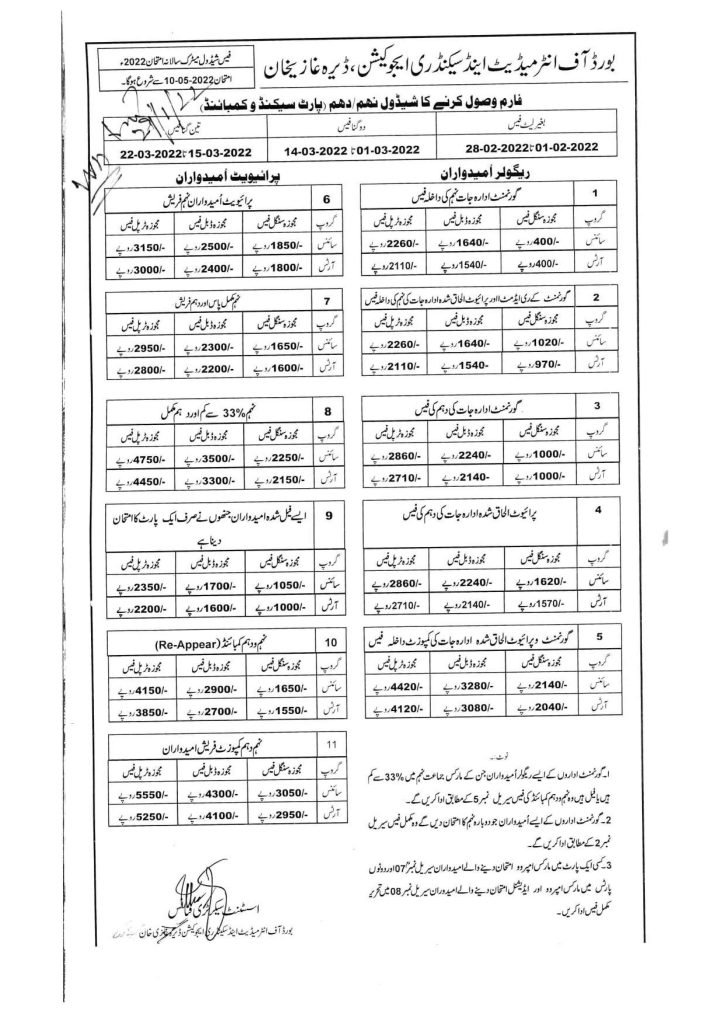 بورڈ آف انٹرمیڈیٹ اینڈ سیکنڈری ایجوکیشن، ڈیرہ غازیخان
فیس شیڈول میٹرک سالانہ امتحان 2022ء
امتحان 2022-05-10 سے شروع ہوگا۔
فارم وصول کرنے کا شیڈول نہم/دہم (پارٹ سیکنڈ و کمبائنڈ)
بغیر لیٹ فیس دوگنا فیس تین گنا فیس
01-02-2022 تا 28-02-2022 01-03-2022 تا 14-03-2022 15-03-2022 تا 22-03-2022
ریگولر اُمیدواران
1 گورنمنٹ ادارہ جات نہم کی داخلہ فیس
گروپ مجوزہ سنگل فیس مجوزہ ڈبل فیس مجوزہ ٹرپل فیس
سائنس 400/- روپے 1640/- روپے 2260/- روپے
آرٹس 400/- روپے 1540/- روپے 2110/- روپے
2 گورنمنٹ کے ری ایڈمٹ اور پرائیوٹ الحاق شدہ ادارہ جات کی نہم کی داخلہ فیس
گروپ مجوزہ سنگل فیس مجوزہ ڈبل فیس مجوزہ ٹرپل فیس
سائنس 1020/- روپے 1640/- روپے 2260/- روپے
آرٹس 970/- روپے 1540- روپے 2110/- روپے
3 گورنمنٹ ادارہ جات کی دہم کی فیس
گروپ مجوزہ سنگل فیس مجوزہ ڈبل فیس مجوزہ ٹرپل فیس
سائنس 1000/- روپے 2240/- روپے 2860/- روپے
آرٹس 1000/- روپے 2140- روپے 2710/- روپے
4 پرائیوٹ الحاق شدہ ادارہ جات کی دہم کی فیس
گروپ مجوزہ سنگل فیس مجوزہ ڈبل فیس مجوزہ ٹرپل فیس
سائنس 1620/- روپے 2240/- روپے 2860/- روپے
آرٹس 1570/- روپے 2140/- روپے 2710/- روپے
5 گورنمنٹ و پرائیوٹ الحاق شدہ ادارہ جات کی کمپوزٹ داخلہ فیس
گروپ مجوزہ سنگل فیس مجوزہ ڈبل فیس مجوزہ ٹرپل فیس
سائنس 2140/- روپے 3280/- روپے 4420/- روپے
آرٹس 2040/- روپے 3080/- روپے 4120/- روپے
پرائیویٹ اُمیدواران
6 پرائیویٹ اُمیدواران نہم فریش
گروپ مجوزہ سنگل فیس مجوزہ ڈبل فیس مجوزہ ٹرپل فیس
سائنس 1850/- روپے 2500/- روپے 3150/- روپے
آرٹس 1800/- روپے 2400/- روپے 3000/- روپے
7 نہم مکمل پاس اور دہم فریش
گروپ مجوزہ سنگل فیس مجوزہ ڈبل فیس مجوزہ ٹرپل فیس
سائنس 1650/- روپے 2300/- روپے 2950/- روپے
آرٹس 1600/- روپے 2200/- روپے 2800/- روپے
8 نہم 33% سے کم اور دہم مکمل
گروپ مجوزہ سنگل فیس مجوزہ ڈبل فیس مجوزہ ٹرپل فیس
سائنس 2250/- روپے 3500/- روپے 4750/- روپے
آرٹس 2150/- روپے 3300/- روپے 4450/- روپے
9 ایسے فیل شدہ امیدواران جنھوں نے صرف ایک پارٹ کا امتحان
دینا ہے
گروپ مجوزہ سنگل فیس مجوزہ ڈبل فیس مجوزہ ٹرپل فیس
سائنس 1050/- روپے 1700/- روپے 2350/- روپے
آرٹس 1000/- روپے 1600/- روپے 2200/- روپے
10 نہم و دہم کمبائنڈ (Re-Appear)
گروپ مجوزہ سنگل فیس مجوزہ ڈبل فیس مجوزہ ٹرپل فیس
سائنس 1650/- روپے 2900/- روپے 4150/- روپے
آرٹس 1550/- روپے 2700/- روپے 3850/- روپے
11 نہم و دہم کمپوزٹ فریش امیدواران
گروپ مجوزہ سنگل فیس مجوزہ ڈبل فیس مجوزہ ٹرپل فیس
سائنس 3050/- روپے 4300/- روپے 5550/- روپے
آرٹس 2950/- روپے 4100/- روپے 5250/- روپے
نوٹ۔
1۔ گورنمنٹ اداروں کے ایسے ریگولر اُمیدواران جن کے مارکس جماعت نہم میں 33% سے کم
ہیں یا فیل ہیں وہ نہم و دہم کمبائنڈ کی فیس سیریل نمبر 5 کے مطابق ادا کریں گے۔
2۔ گورنمنٹ اداروں کے ایسے اُمیدواران جو دوبارہ نہم کا امتحان دیں گے وہ مکمل فیس سیریل
نمبر 2 کے مطابق ادا کریں گے۔
3۔ کسی ایک پارٹ میں مارکس امپروو امتحان دینے والے امیدواران سیریل نمبر 07 اور دونوں
پارٹس میں مارکس امپروو اور ایڈیشنل امتحان دینے والے اُمیدواران سیریل نمبر 08 میں تحریر
مکمل فیس ادا کریں۔
اسسٹنٹ سیکرٹری فنانس
بورڈ آف انٹرمیڈیٹ اینڈ سیکنڈری ایجوکیشن ڈیرہ غازی خان